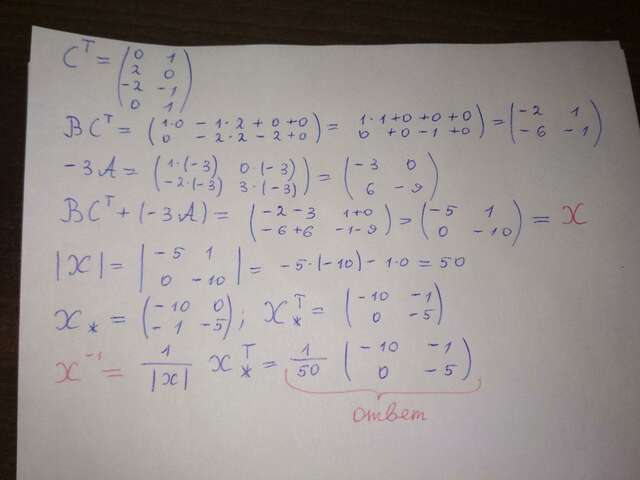 C^T = (0 1; 2 0; -2 -1; 0 1)
BC^T = (1·0 - 1·2 + 0 + 0; 0 - 2·2 - 2 + 0) = (1·1 + 0 + 0 + 0; 0 + 0 - 1 + 0) = (-2 1; -6 -1)
-3A = (1·(-3) 0·(-3); -2·(-3) 3·(-3)) = (-3 0; 6 -9)
BC^T + (-3A) = (-2-3 1+0; -6+6 -1-9) = (-5 1; 0 -10) = X
|X| = |-5 1; 0 -10| = -5·(-10) - 1·0 = 50
X_* = (-10 0; -1 -5); X_*^T = (-10 -1; 0 -5)
X^-1 = 1/|X| X_*^T = 1/50 (-10 -1; 0 -5)
ответ